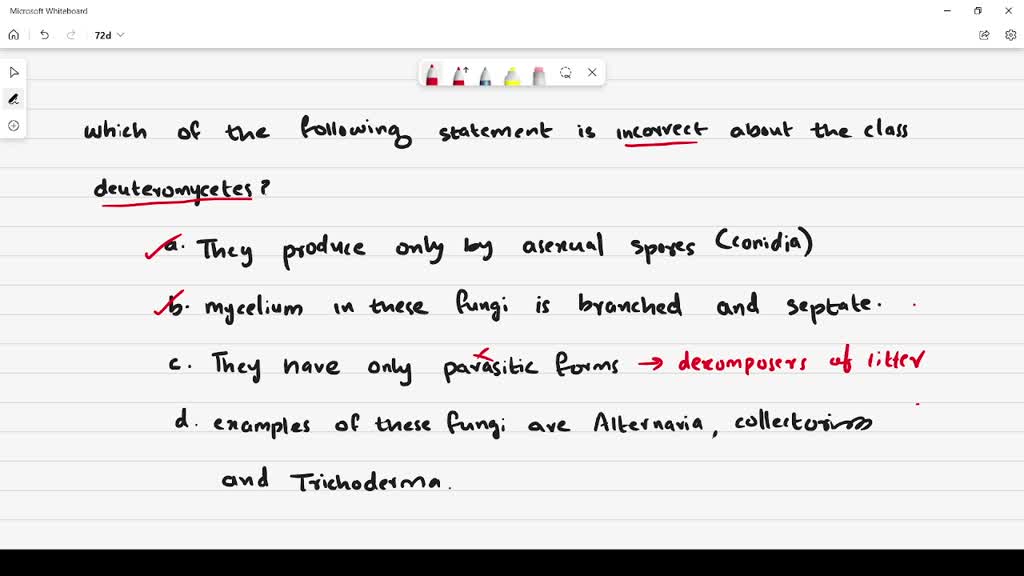 Microsoft Whiteboard
72d
Which of the following statement is incorrect about the class
deuteromycetes?
a. They produce only by asexual spores (conidia)
b. mycelium in these fungi is branched and septate.
c. They have only parasitic forms → decomposers of litter
d. examples of these fungi are Alternaria,
and Trichoderma.